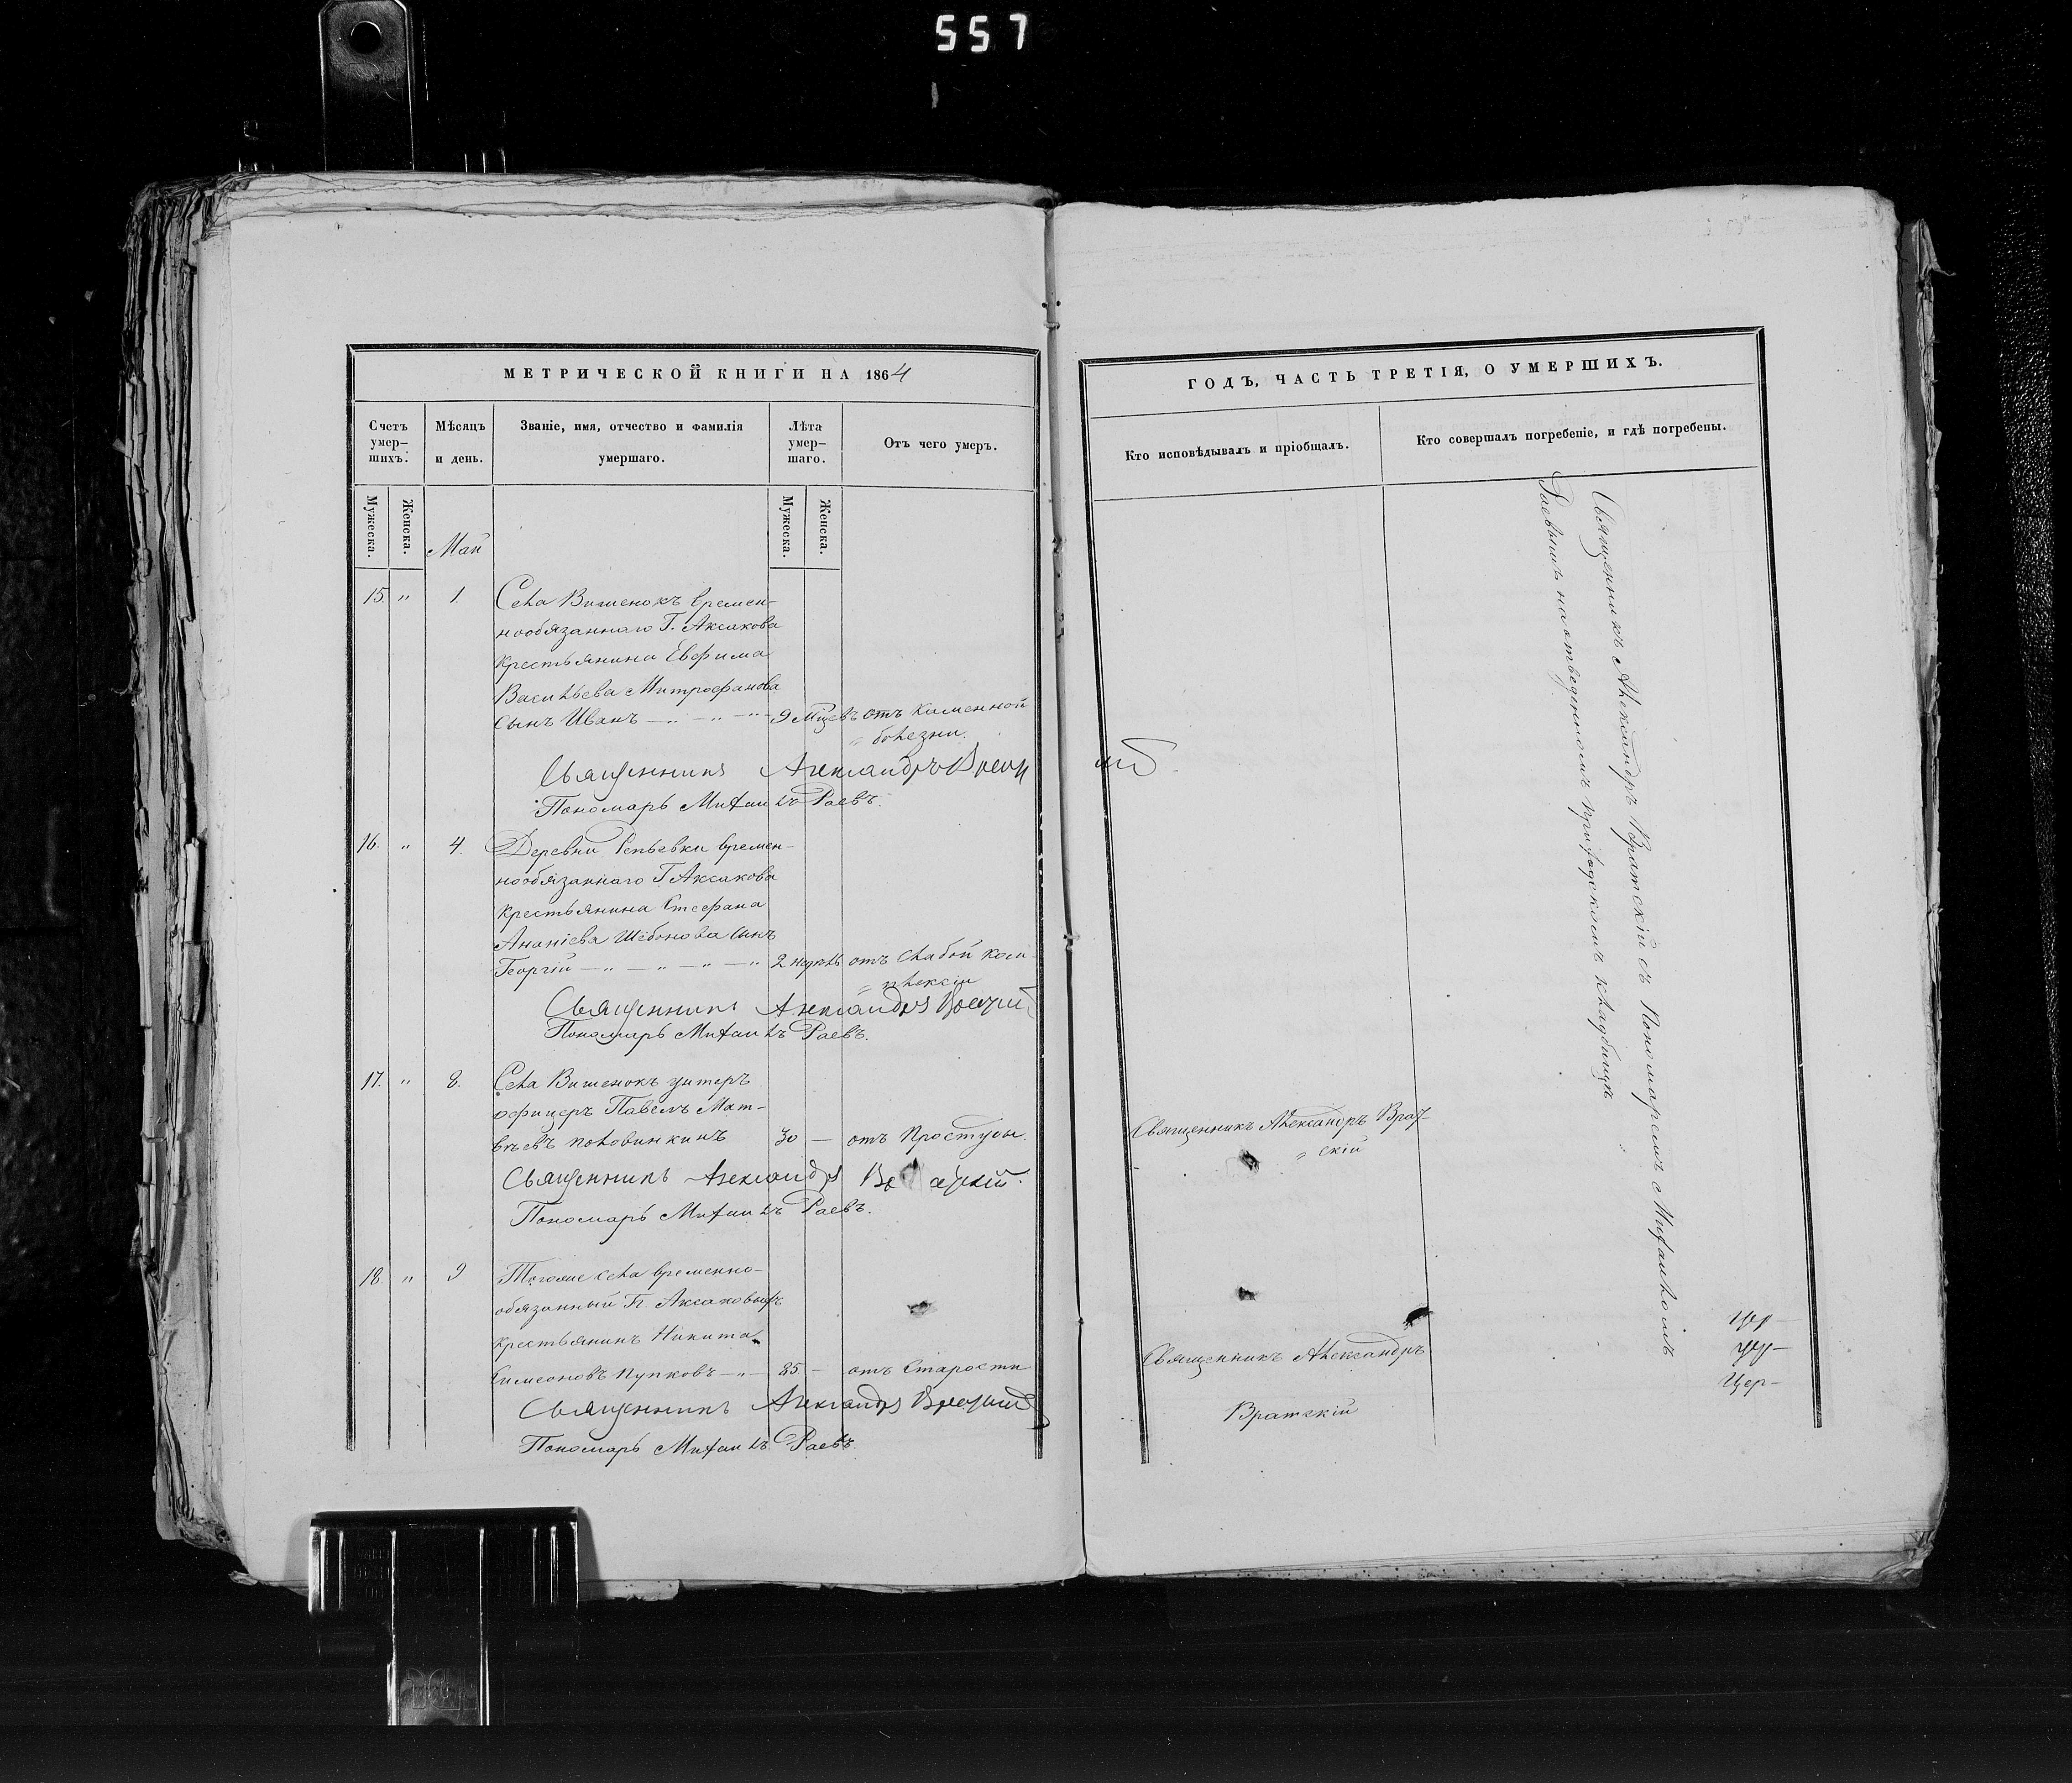 557
МЕТРИЧЕСКОЙ КНИГИ НА 1864
Счетъ умер-шихъ.
Мѣсяцъ и день.
Званіе, имя, отчество и фамилія умершаго.
Лѣта умер-шаго.
Отъ чего умеръ.
Мужеска.
Женска.
Май
Мужеска.
Женска.
15. " 1. Села Вишенокъ времен-
нообязаннаго Г. Аксакова
крестьянина Евфима
Васильева Митрофанова
сынъ Иванъ — " — " — " — 9 мцевъ отъ каменной
" болезни.
Священникъ Александръ
Пономарь Михаилъ Раевъ.
16. " 4. Деревни Репьевки времен-
нообязаннаго Г. Аксакова
крестьянина Стефана
Ананіева сынъ
Георгій — " — " — " — " 2 недель отъ слабой ком-
" плексіи
Священникъ Александръ
Пономарь Михаилъ Раевъ.
17. " 8. Села Вишенокъ унтеръ
офицеръ Павелъ Мат-
вѣевъ Половинкинъ 30 — отъ простуды.
Священникъ Александръ
Пономарь Михаилъ Раевъ.
18 " 9 Тогоже села временно-
обязанный Гг. Аксаковыхъ
крестьянинъ Никита
Симеоновъ Пупковъ — " — 85 — отъ старости
Священникъ Александръ
Пономарь Михаилъ Раевъ.
ГОДЪ, ЧАСТЬ ТРЕТІЯ, О УМЕРШИХЪ.
Кто исповѣдывалъ и пріобщалъ.
Кто совершалъ погребеніе, и гдѣ погребены.
Священникъ Александръ Врат-
" скій
Священникъ Александръ
Вратскій
Священникъ Александръ Вратскій съ Пономаремъ Михаиломъ
Раевымъ на отведенномъ приходскомъ кладбищѣ
Цер-